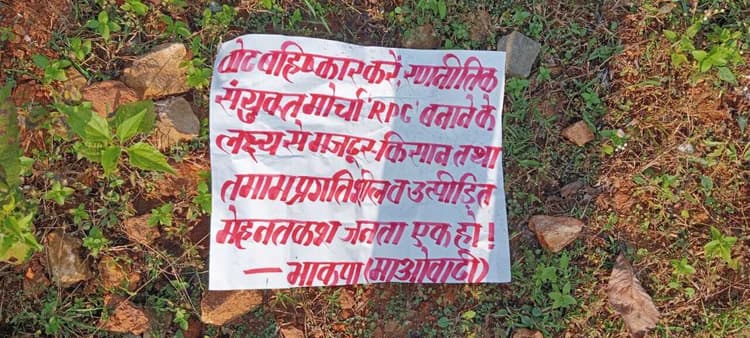 वोट वहिष्कार करें रणनीतिक
संयुक्त मोर्चा 'RPC' बनाने के
लक्ष्य से मजदूर किसान तथा
तमाम प्रगतिशील व उत्पीड़ित
मेहनतकश जनता एक हो!
— भाकपा (माओवादी)